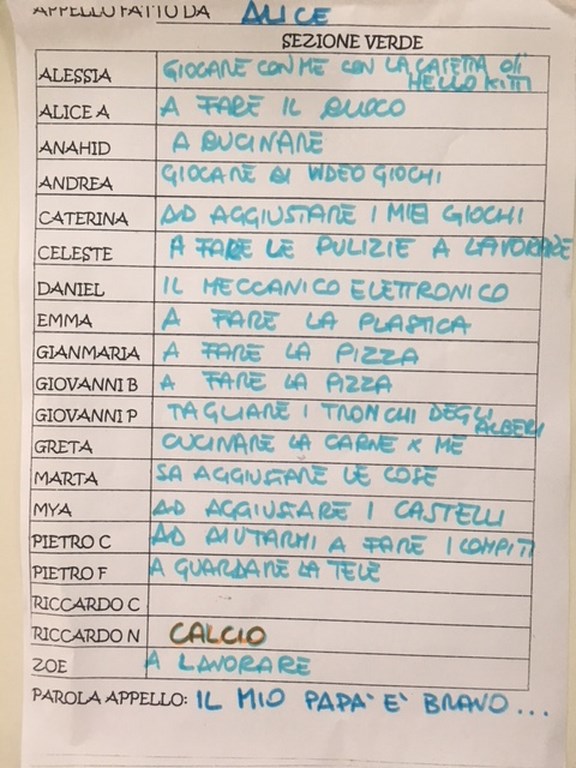 APPELLO FATTO DA ALICE
SEZIONE VERDE
ALESSIA GIOCARE CON ME CON LA CASETTA di HELLO KITTI
ALICE A A FARE IL FUOCO
ANAHID A CUCINARE
ANDREA GIOCARE AI VIDEO GIOCHI
CATERINA AD AGGIUSTARE I MIEI GIOCHI
CELESTE A FARE LE PULIZIE A LAVORARE
DANIEL IL MECCANICO ELETTRONICO
EMMA A FARE LA PLASTICA
GIANMARIA A FARE LA PIZZA
GIOVANNI B A FARE LA PIZZA
GIOVANNI P TAGLIARE I TRONCHI DEGLI ALBERI
GRETA CUCINARE LA CARNE X ME
MARTA SA AGGIUSTARE LE COSE
MYA AD AGGIUSTARE I CASTELLI
PIETRO C AD AIUTARMI A FARE I COMPITI
PIETRO F A GUARDARE LA TELE
RICCARDO C
RICCARDO N CALCIO
ZOE A LAVORARE
PAROLA APPELLO: IL MIO PAPA' E' BRAVO...